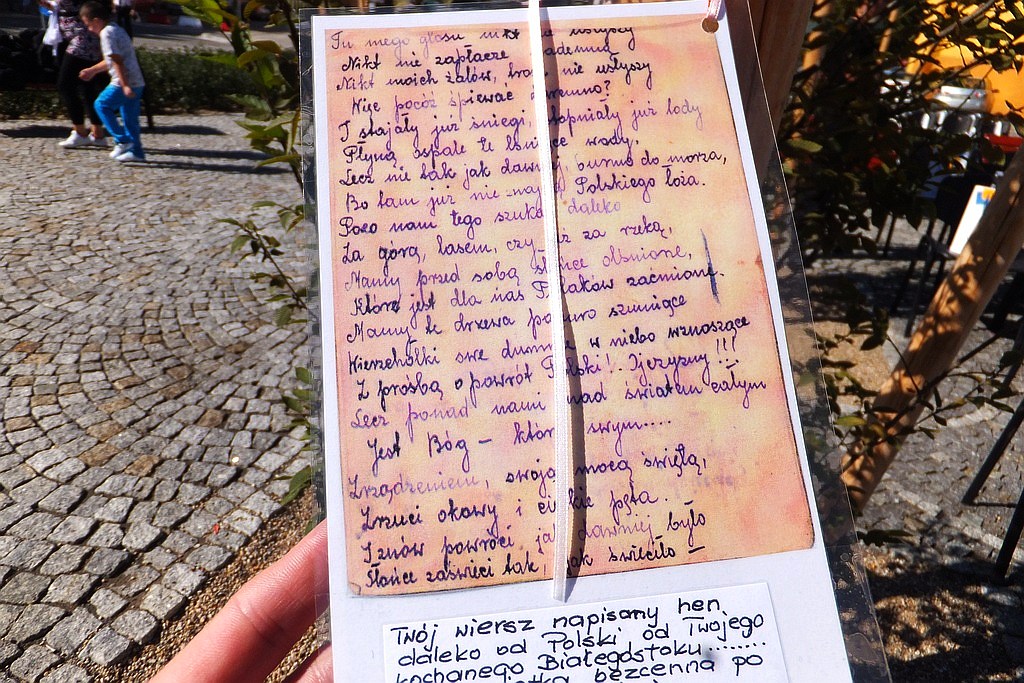 Tu mego głosu nikt nie usłyszy
Nikt nie zapłacze nademną
Nikt moich żalów, nie usłyszy
Więc pocóż śpiewać daremno?
I stajały już śniegi, stopniały już lody
Płyną ospale te lśniące wody.
Lecz nie tak jak dawniej, burno do morza,
Bo tam już nie znajdą Polskiego łoża.
Poco nam tego szukać daleko
Za górą, lasem, czy też za rzeką,
Mamy przed sobą słońce olśnione,
Które jest dla nas Polaków zaćmione.
Mamy te drzewa ponuro szumiące
Wierzchołki swe dumnie w niebo wznoszące
Z prośbą o powrót Polski! Ojczyzny!!!
Lecz ponad nami nad światem całym
Jest Bóg – który swym....
Zrządzeniem, swoją mocą świętą,
Zrzuci okowy i ciężkie pęta.
I znów powróci jak dawniej było
Słońce zaświeci tak, jak świeciło –
Twój wiersz napisany hen,
daleko od Polski, od Twojego
kochanego Białegostoku........
bezcenna po